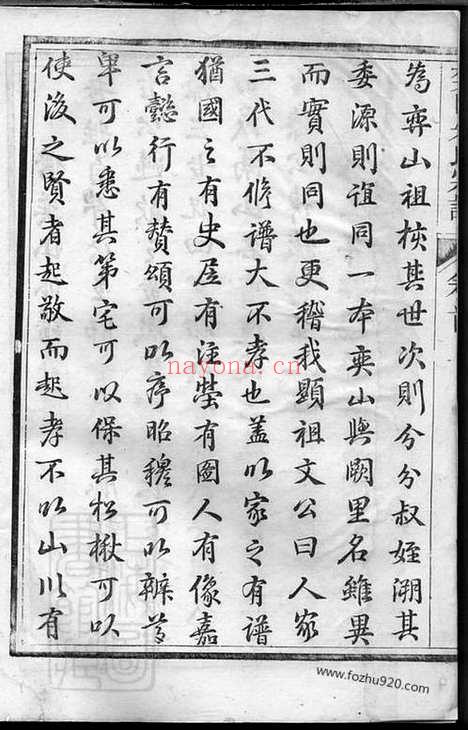 為弈山祖核其世次則分分叔姪溯其
委源則誼同一本奕山與闕里名雖異
而實則同也更稽我顯祖文公曰人家
三代不修譜大不孝也蓋以家之有譜
猶國之有史居有注塋有圖人有像嘉
言懿行有贊頌可以序昭穆可以辨尊
卑可以悉其第宅可以保其松楸可以
使後之賢者起敬而起孝不以山川有
nayona.cn
www.fozhu920.com